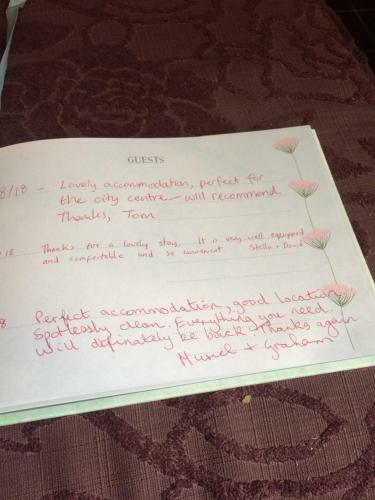 GUESTS
8/18 - Lovely accommodation, perfect for
the city centre - will recommend.
Thanks, Tom
18 Thanks for a lovely stay. It is very well equipped
and comfortable and so convenient Stella + David
8 Perfect accommodation, good location
Spotlessly clean. Everything you need.
Will definately be back. Thanks again
Muriel + Graham